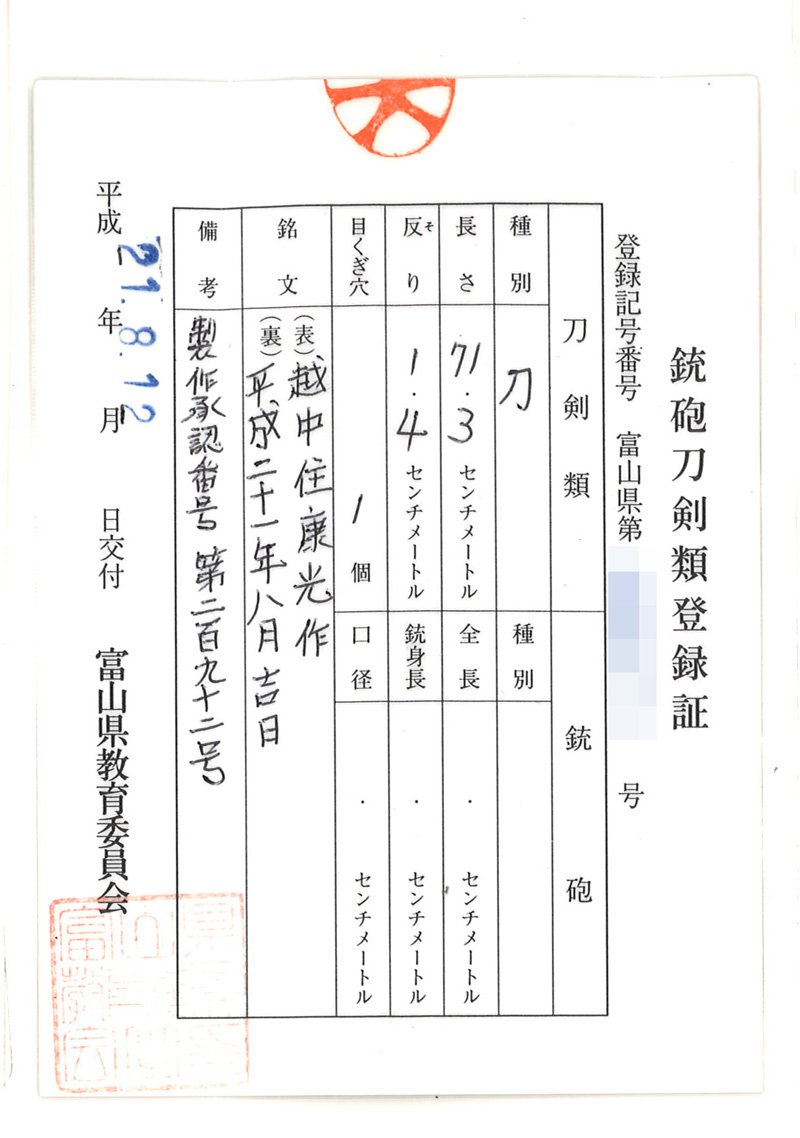 銃砲刀剣類登録証
登録記号番号 富山県第 号
刀剣類 銃砲
種別 刀 種別
長さ 71.3センチメートル 全長 ・センチメートル
反り そ 1.4センチメートル 銃身長 ・センチメートル
目くぎ穴 1個 口径 ・センチメートル
銘文 (表)越中住康光作
(裏)平成二十一年八月吉日
備考 製作承認番号 第二百九十二号
平成 年 月 日交付 富山県教育委員会
21.8.12